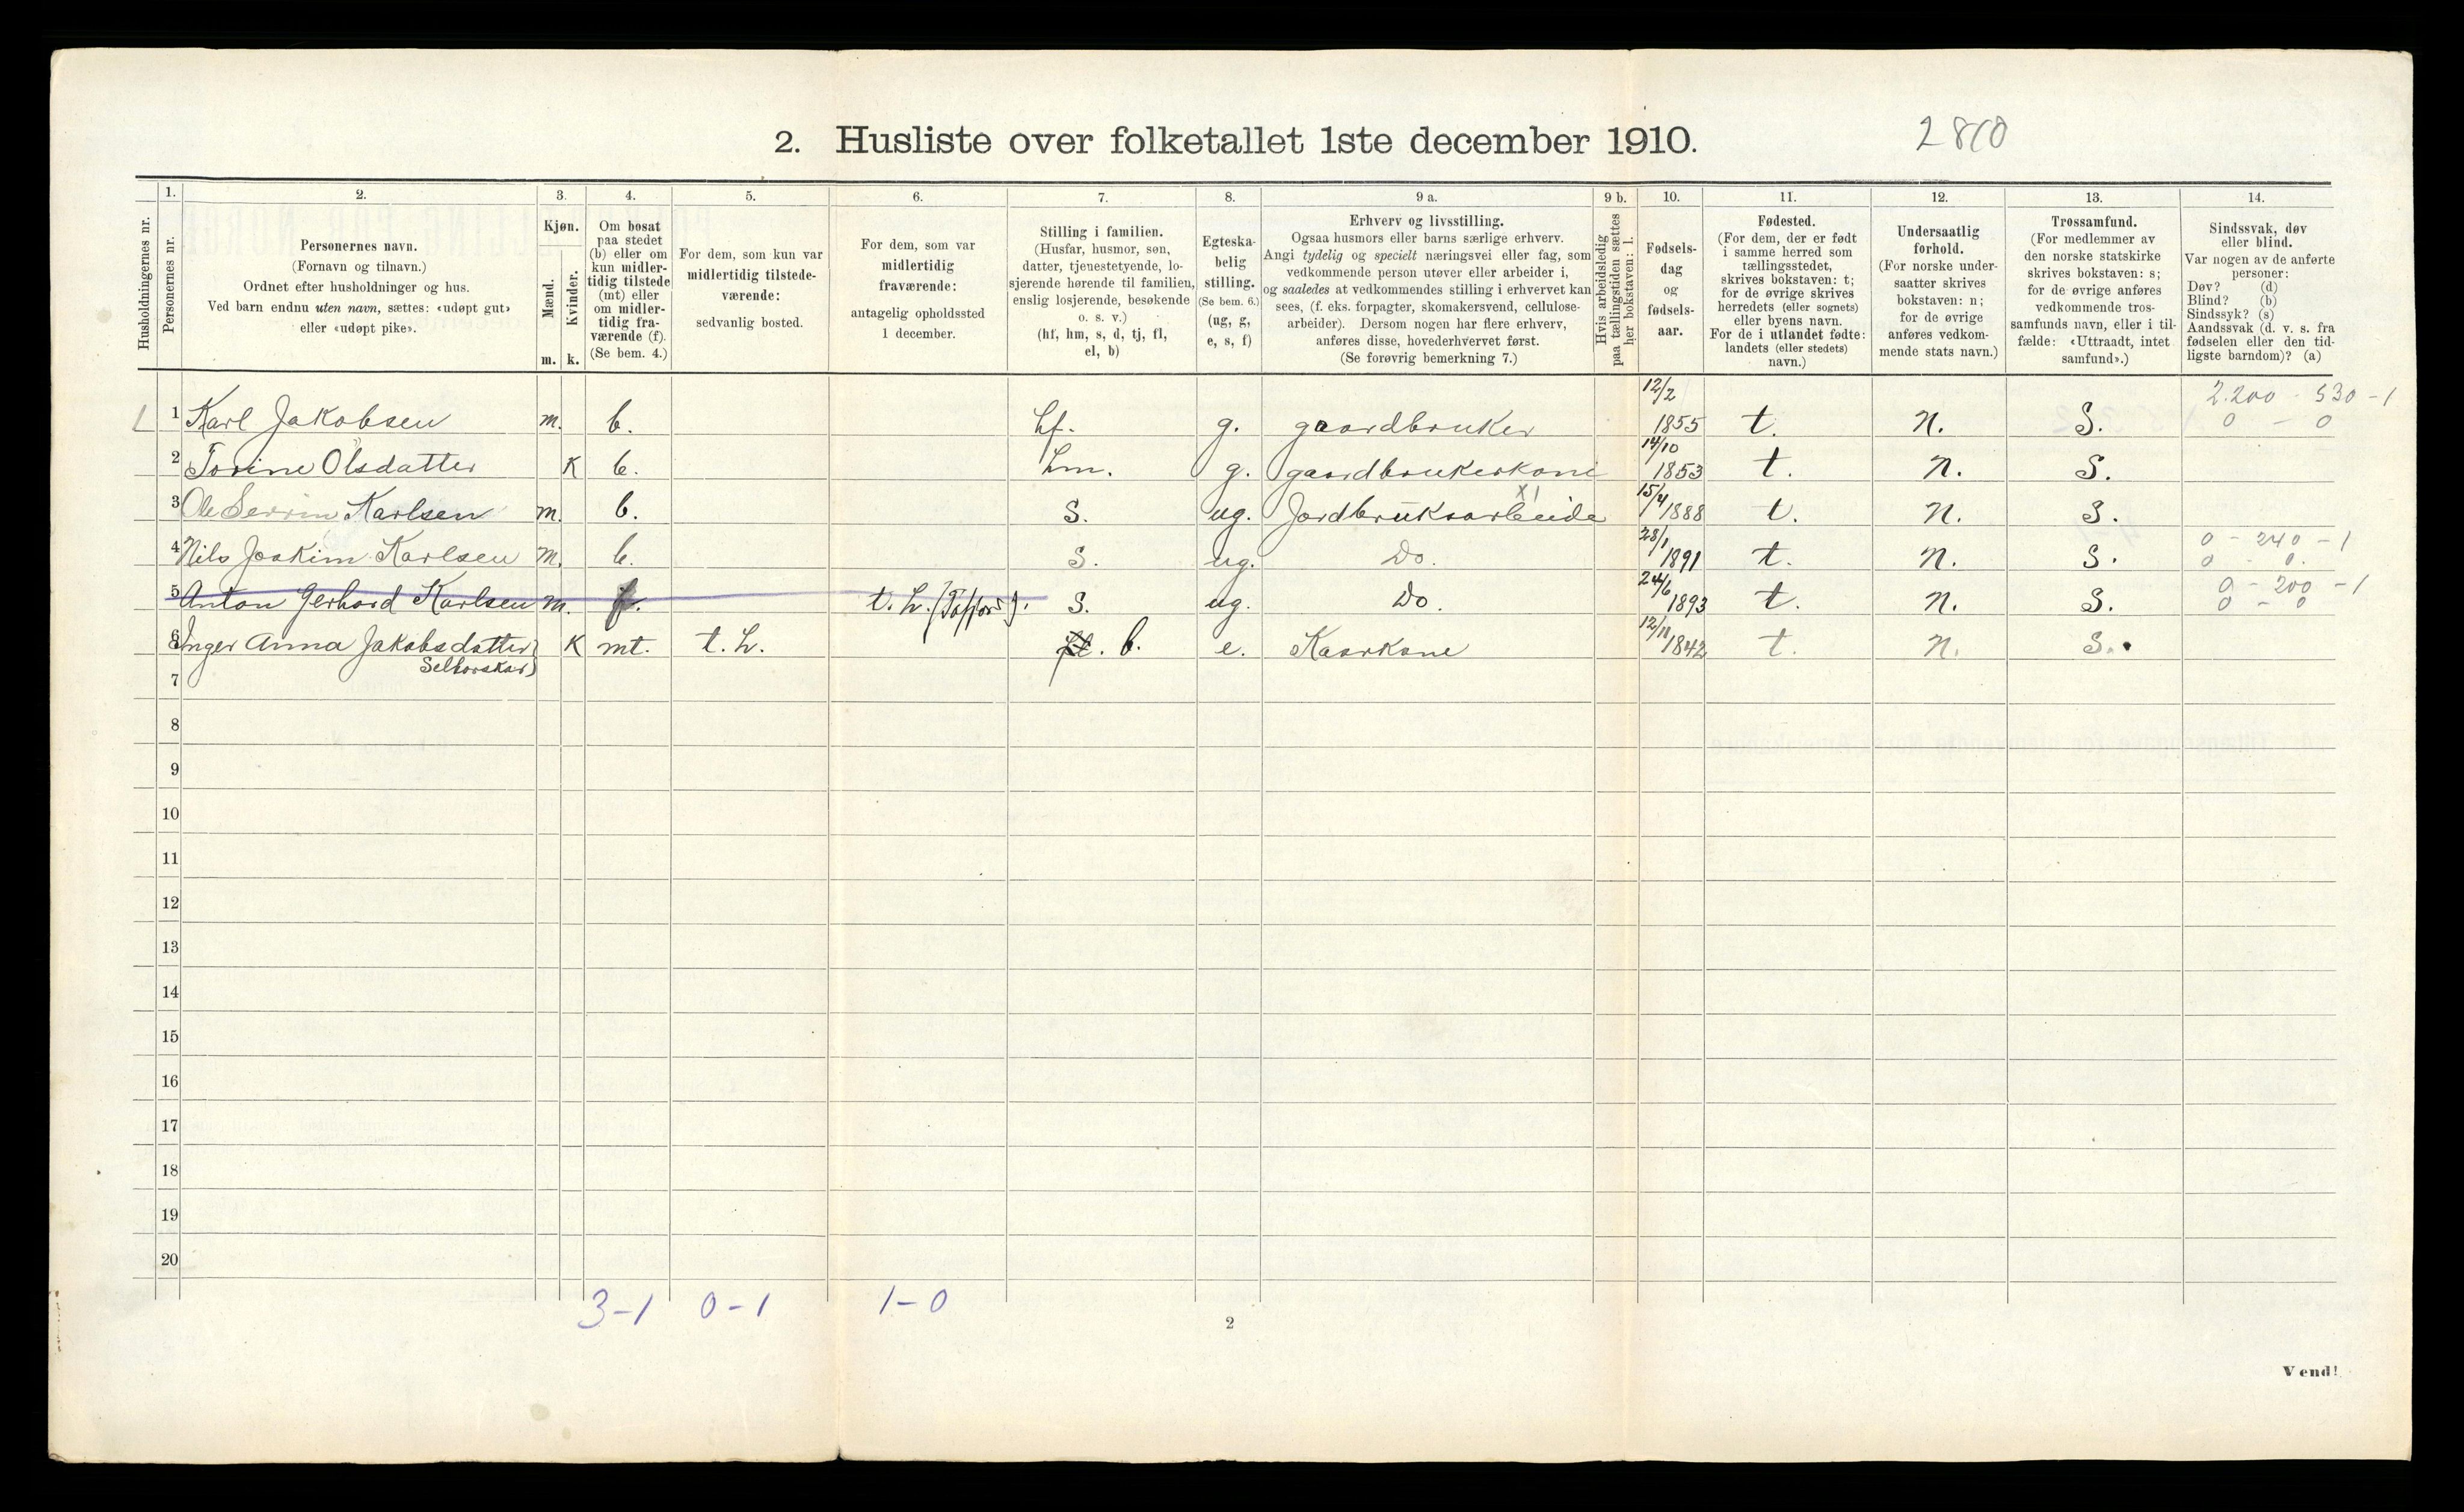 2. Husliste over folketallet 1ste december 1910. 2810
Husholdningernes nr.
1. Personernes nr.
2. Personernes navn.
(Fornavn og tilnavn.)
Ordnet efter husholdninger og hus.
Ved barn endnu uten navn, sættes: «udøpt gut»
eller «udøpt pike».
3. Kjøn.
Mænd. Kvinder.
m. k.
4. Om bosat
paa stedet
(b) eller om
kun midler-
tidig tilstede
(mt) eller
om midler-
tidig fra-
værende (f).
(Se bem. 4.)
5. For dem, som kun var
midlertidig tilstede-
værende:
sedvanlig bosted.
6. For dem, som var
midlertidig
fraværende:
antagelig opholdssted
1 december.
7. Stilling i familien.
(Husfar, husmor, søn,
datter, tjenestetyende, lo-
sjerende hørende til familien,
enslig losjerende, besøkende
o. s. v.)
(hf, hm, s, d, tj, fl,
el, b)
8. Egteska-
belig
stilling.
(Se bem. 6.)
(ug, g,
e, s, f)
9 a. Erhverv og livsstilling.
Ogsaa husmors eller barns særlige erhverv.
Angi tydelig og specielt næringsvei eller fag, som
vedkommende person utøver eller arbeider i,
og saaledes at vedkommendes stilling i erhvervet kan
sees, (f. eks. forpagter, skomakersvend, cellulose-
arbeider). Dersom nogen har flere erhverv,
anføres disse, hovederhvervet først.
(Se forøvrig bemerkning 7.)
9 b. Hvis arbeidsledig
paa tællingstiden sættes
her bokstaven: l.
10. Fødsels-
dag
og
fødsels-
aar.
11. Fødested.
(For dem, der er født
i samme herred som
tællingsstedet,
skrives bokstaven: t;
for de øvrige skrives
herredets (eller sognets)
eller byens navn.
For de i utlandet fødte:
landets (eller stedets)
navn.)
12. Undersaatlig
forhold.
(For norske under-
saatter skrives
bokstaven: n;
for de øvrige
anføres vedkom-
mende stats navn.)
13. Trossamfund.
(For medlemmer av
den norske statskirke
skrives bokstaven: s;
for de øvrige anføres
vedkommende tros-
samfunds navn, eller i til-
fælde: «Uttraadt, intet
samfund».)
14. Sindssvak, døv
eller blind.
Var nogen av de anførte
personer:
Døv? (d)
Blind? (b)
Sindssyk? (s)
Aandssvak (d. v. s. fra
fødselen eller den tid-
ligste barndom)? (a)
1 1 Karl Jakobsen m. b. hf. g. gaardbruker 12/2 1855 t. n. S. 2.200 - 530 - 1
0 - 0
2 Torine Olsdatter K b. hm. g. gaardbrukerkone 14/10 1853 t. n. S.
3 Ole Severin Karlsen m. b. S. ug. Jordbruksarbeide 15/4 1888 t. n. S.
4 Nils Joakim Karlsen m. b. S. ug. Do. 28/1 1891 t. n. S. 0 - 240 - 1
0 - 0.
5 Anton Gerhard Karlsen m. f. t. h. (Tafjord). S. ug. Do. 24/6 1893 t. n. S. 0 - 200 - 1
0 - 0
6 Inger Anna Jakobsdatter K mt. t. h. fl. b. e. Kaarkone 12/11 1842 t. n. S.
7
8
9
10
11
12
13
14
15
16
17
18
19
20
3-1 0-1 1-0
2
Vend!